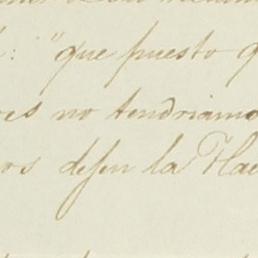 : "que puesto q
res no tendriamo
os defen la Hac